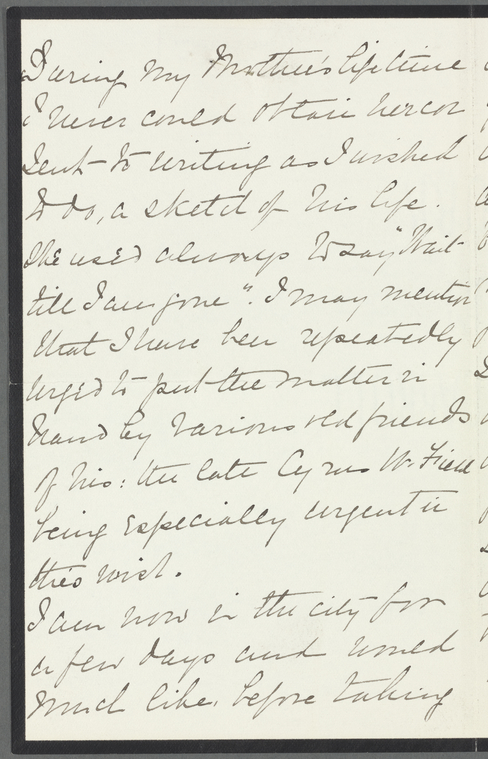 During my Mother's lifetime
I never could obtain her con
sent to writing as I wished
to do, a sketch of his life.
She used always to say "Wait
till I am gone". I may mention
that I have been repeatedly
urged to put the matter in
hand by various old friends
of his: the late Cyrus W. Field
being especially urgent in
this wish.
I am now in the city for
a few days and would
much like, before taking